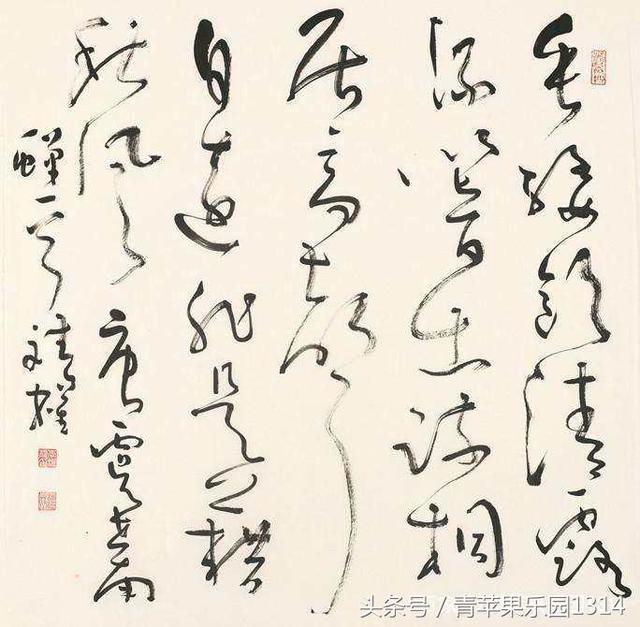 垂緌飲清露
流響出疏桐
居高聲
自遠非是藉
秋風 唐虞世南
蟬一首
头条号 / 青苹果乐园1314